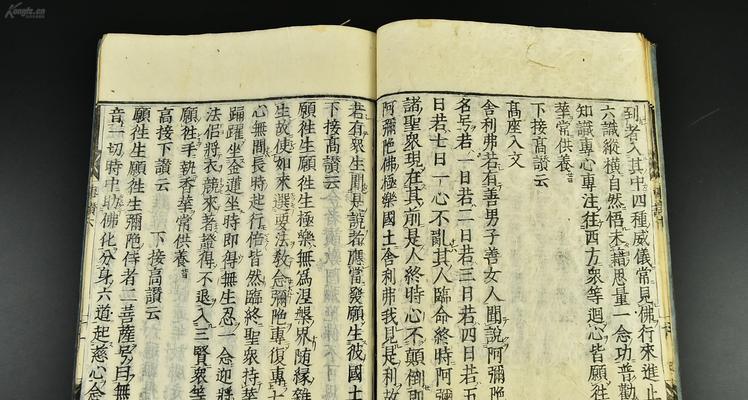 Kongfz.cn
到者入其中四種威儀常見佛行來進止
六識縱橫自然悟未藉思量一念功普勸
知識專心專注往西方衆等迴心皆願往
華常供養
下接高讚云
高座入文
舍利弗若有善男子善女人聞說阿彌陀
名号若一日若二日若三日若四日若五
日若七日一心不亂其人臨命終時阿
諸聖衆現在其前是人終時心不顛倒即
阿彌陀佛極樂國土舍利弗我見是利故
若有衆生聞是說者應當發願生彼國土
下接高讚云
願往生願往生極樂無爲涅槃界隨緣雜
生故使如來選要法教念彌陀專復專
心無間長時起行倍皆然臨終聖衆持華
踊躍坐金蓮坐時即得無生忍一念迎將
法侶將衣競來著證得不退入三賢衆等
願往生手執香華常供養
高接下讚云 下接高讚云
願往生願往生彌陀侍者二菩薩号曰無
音一切時中助佛化分身六道起慈心念